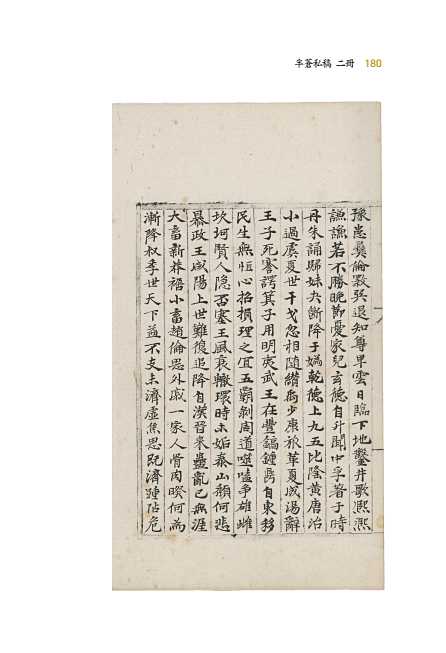 半蒼私稿 二冊 180
豫恚彛倫斁巽退知尊卑雲日臨下地鑿井歌熙熙
謙謙若不勝晩節憂家兒玄德自升聞中孚著于時
丹朱訟歸妹夬斷降于嬀乾德上九五比隆黃唐治
小過虞夏世干戈忽相隨纘禹少康租革夏成湯辭
王子死謇諤箕子用明夷武王在豐鎬鍾鼎自東移
民生無恒心招損理之宜五覇剝周道噬嗑爭雄雌
坎坷賢人隱否塞王風衰轍環時未姤泰山頹何悲
暴政王咸陽上世難復追降自漢晉來蠱亂已無涯
大畜新莽禍小畜趙倫思外戚一家人骨肉睽何爲
漸降叔季世天下益不支未濟虛焦思旣濟踵阽危